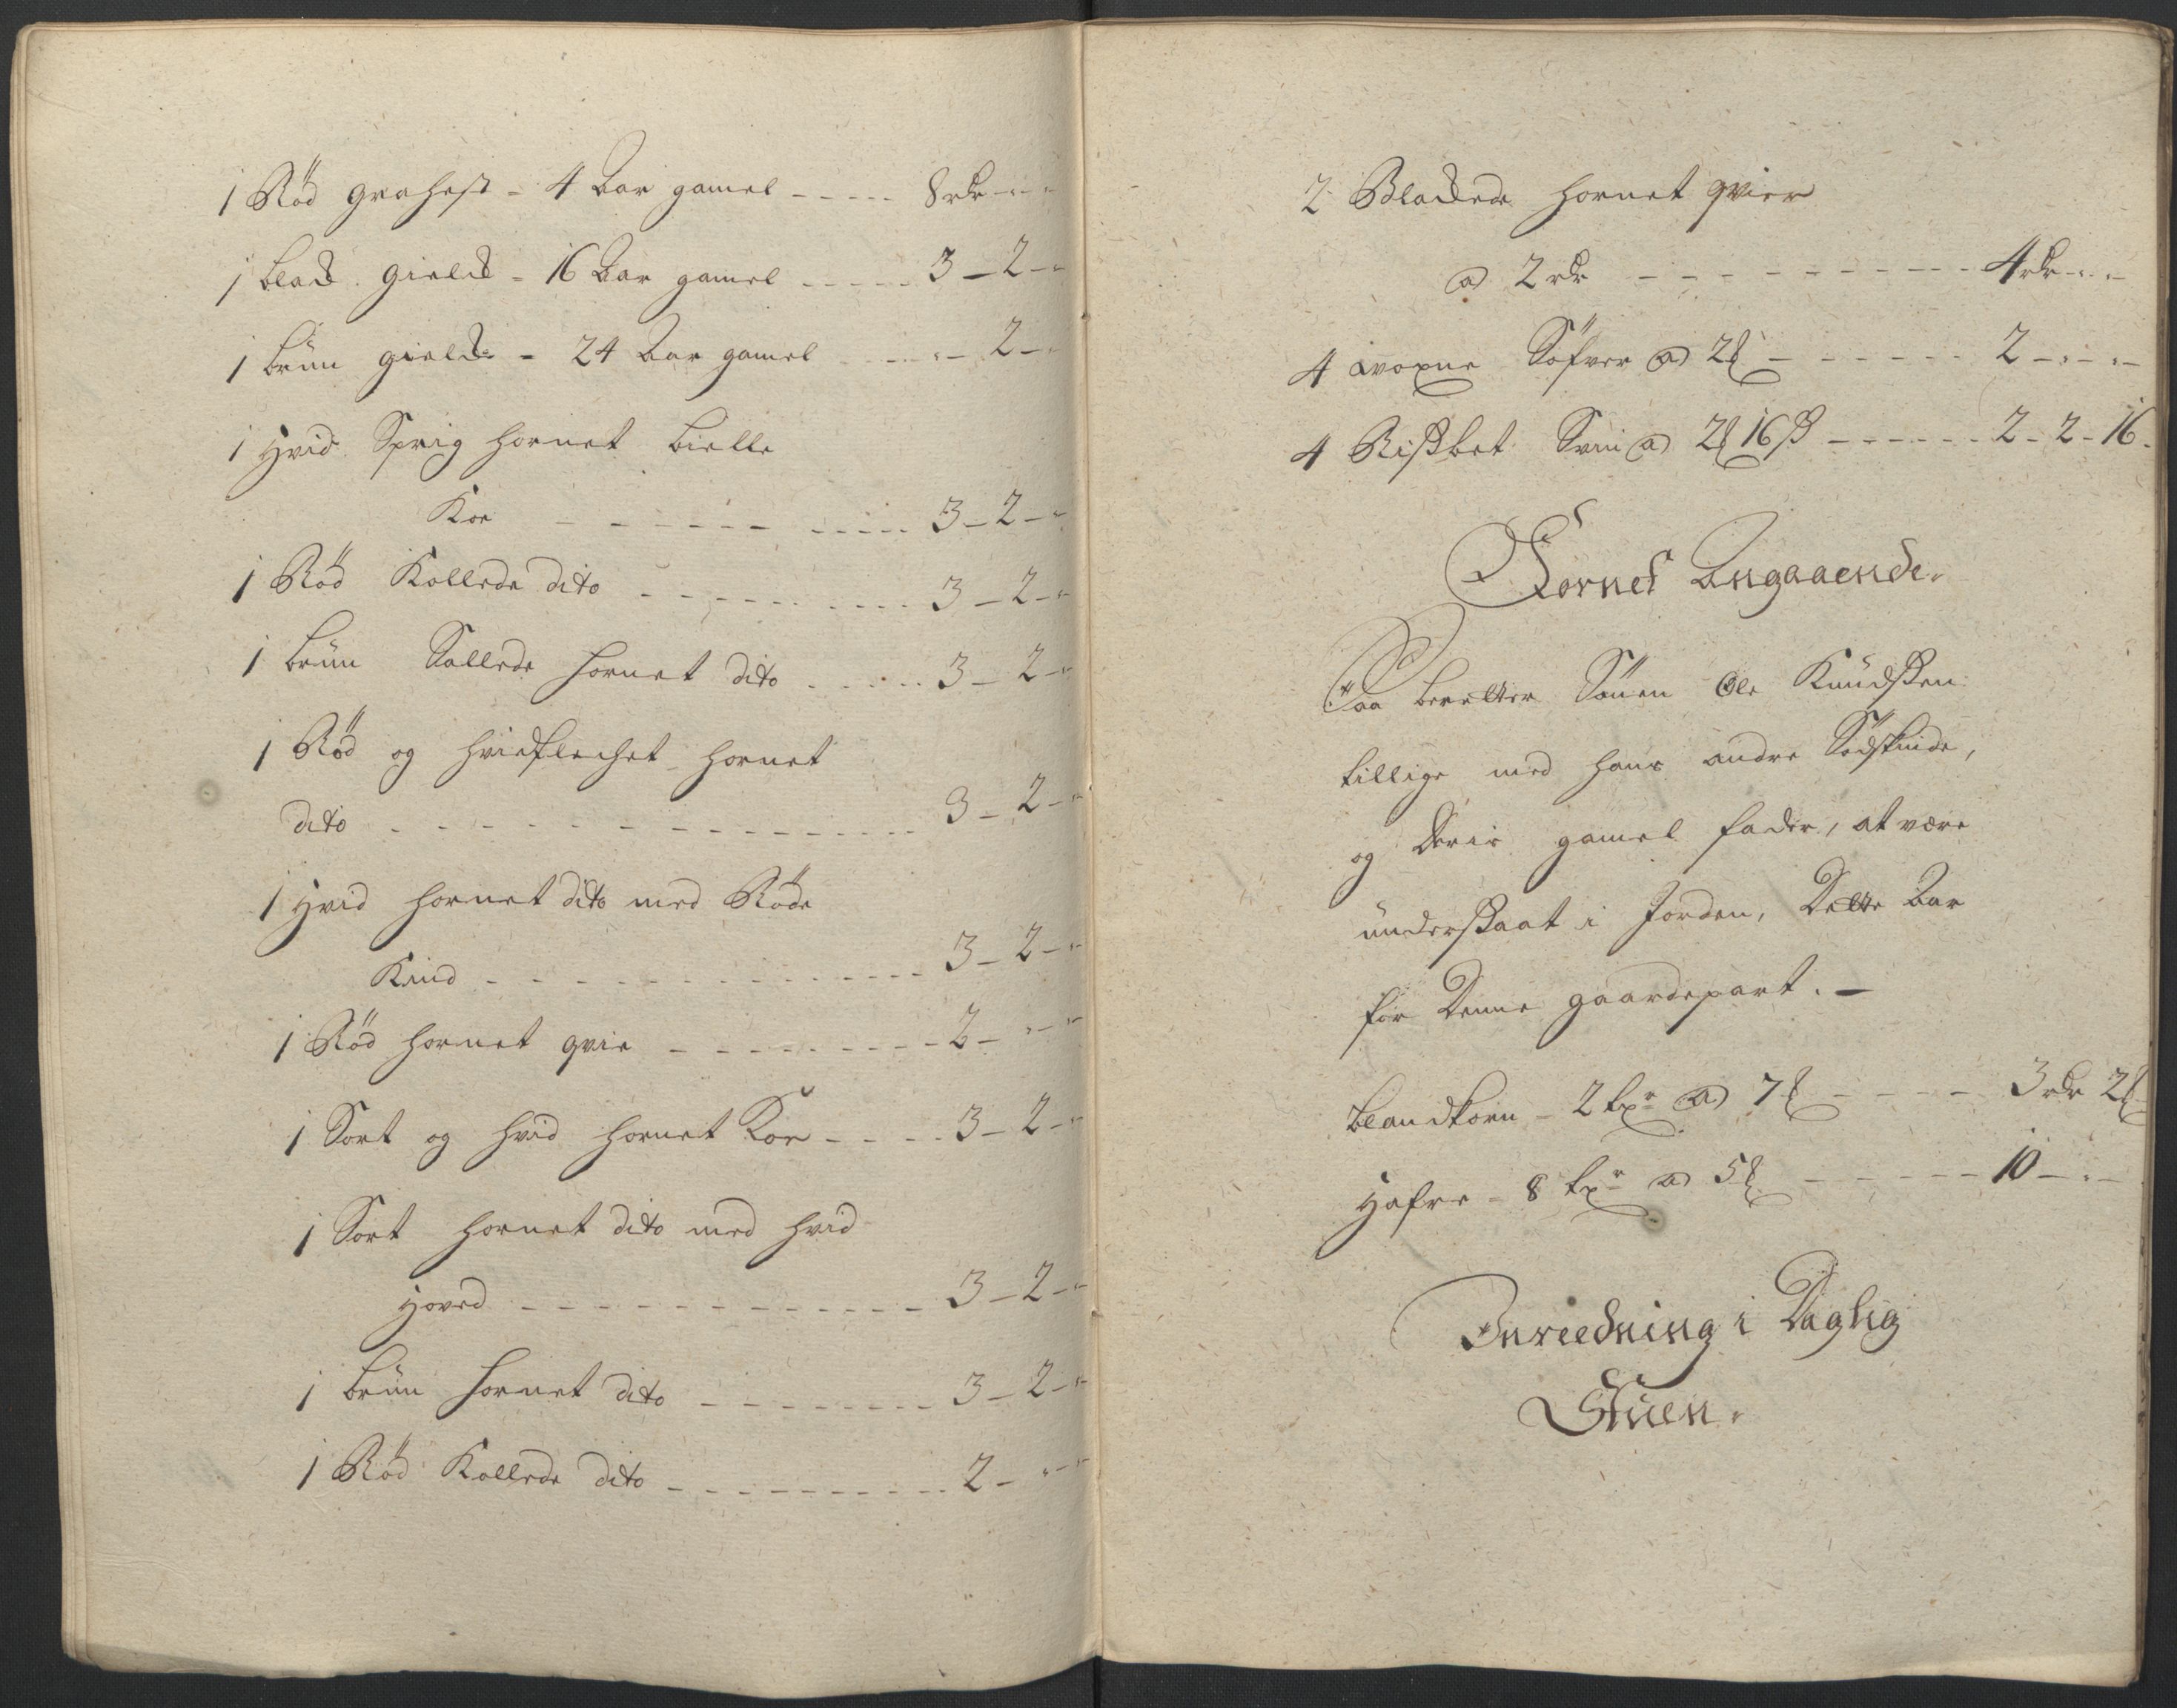 1 Rød grahest - 4 Aar gamel ----- 8 rdr - " - "
1 blad gield - 16 Aar gamel ----- 3 - 2 - "
1 brun gield - 24 Aar gamel ---- " - 2 - "
1 Hvid Sprig hornet bielke
Koe ---------- 3 - 2 - "
1 Rød Kollede dito ---------- 3 - 2 - "
1 brun Sallede hornet dito ----- 3 - 2 - "
1 Rød og hvidflechet hornet
dito ---------- 3 - 2 - "
1 Hvid hornet dito med Røde
Kind ---------- 3 - 2 - "
1 Rød hornet qvie ---------- 2 - " - "
1 Sort og hvid hornet Koe ---- 3 - 2 - "
1 Sort hornet dito med hvid
Hoved ---------- 3 - 2 - "
1 brun hornet dito -------- 3 - 2 - "
1 Rød Kollede dito ---------- 2 - " - "
2 Bladede hornet qvier
a 2 rdr ---------- 4 rdr - " - "
4 woxne Søfver a 2 ß ------ 2 - " - "
4 Svin a 2 ß 16 ß ------ 2 - 2 - 16
Kornet Angaaende.
Saa beretter Sønen Ole Knudssen
tillige med hans andre Sødskinde,
og Deris gamel fader, at være
underssaat i Jorden, Dette Aar
for Denne gaardepart. -
blandkorn - 2 tr a 7 ß ---- 3 rdr 2 ß
Hafre - 8 tr a 5 ß ----- 10 - " -
Inreedning i Daglig
Stuen.